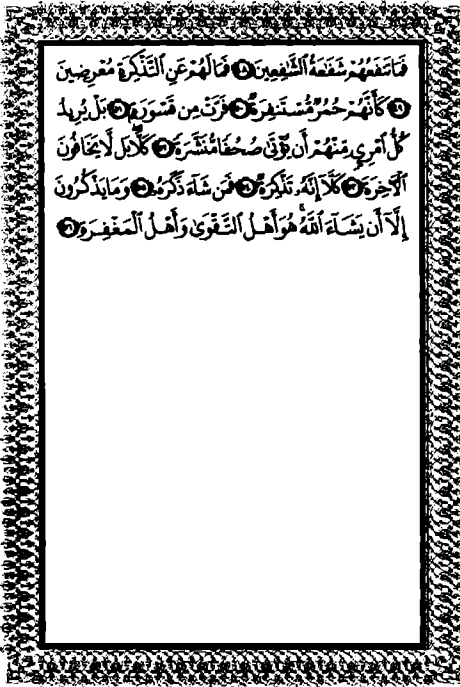 فَمَا تَنفَعُهُمْ شَفَاعَةُ الشَّافِعِينَ ﴿٤٨﴾ فَمَا لَهُمْ عَنِ التَّذْكِرَةِ مُعْرِضِينَ
﴿٤٩﴾ كَأَنَّهُمْ حُمُرٌ مُّسْتَنفِرَةٌ ﴿٥٠﴾ فَرَّتْ مِن قَسْوَرَةٍ ﴿٥١﴾ بَلْ يُرِيدُ
كُلُّ امْرِئٍ مِّنْهُمْ أَن يُؤْتَىٰ صُحُفًا مُّنَشَّرَةً ﴿٥٢﴾ كَلَّا بَل لَّا يَخَافُونَ
الْآخِرَةَ ﴿٥٣﴾ كَلَّا إِنَّهُ تَذْكِرَةٌ ﴿٥٤﴾ فَمَن شَاءَ ذَكَرَهُ ﴿٥٥﴾ وَمَا يَذْكُرُونَ
إِلَّا أَن يَشَاءَ اللَّهُ هُوَ أَهْلُ التَّقْوَىٰ وَأَهْلُ الْمَغْفِرَةِ ﴿٥٦﴾